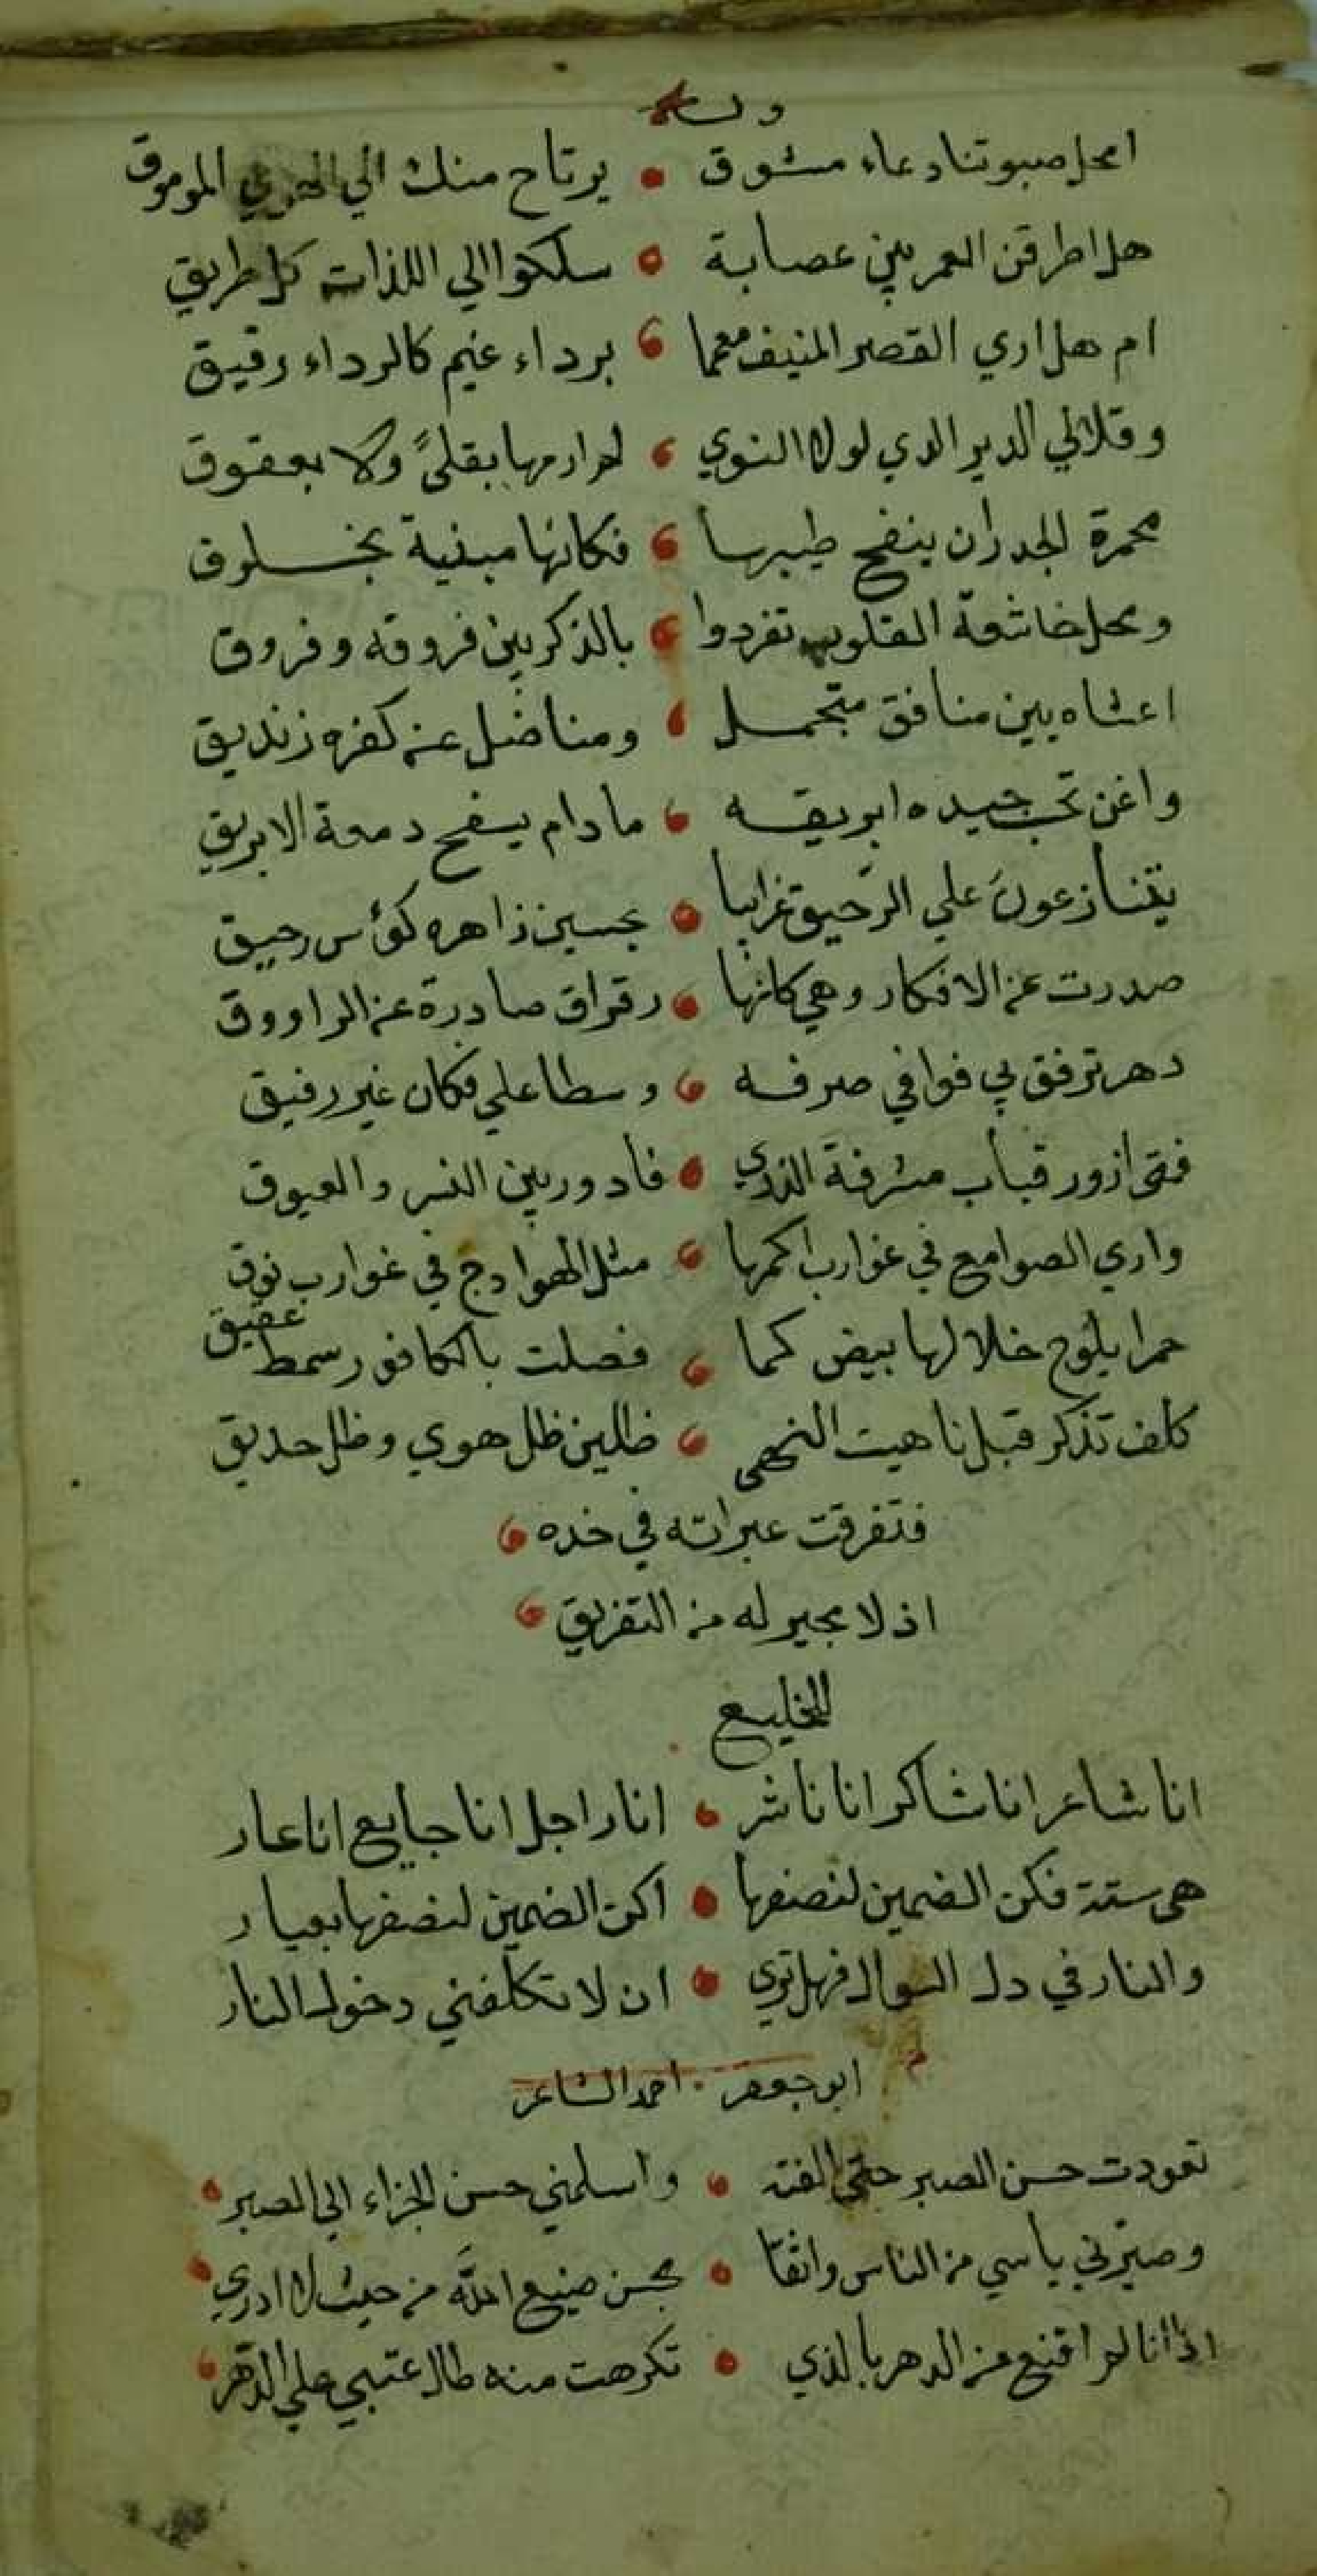 وله
امحل صبوتنا دعاء مشوق • يرتاح منك الي الهوي الموموق
هل اطرقن العمر بين عصابة • سلكوا الي اللذات كل طريق
ام هل اري القصر المنيف معمما • برداء غيم كالرداء رقيق
وقلالي الدير الدي لولا النوي • لم ارمها بقلىً ولا بعقوق
محمرة الجدران ينفح طيبها • فكانها مبنية بخلوق
ومحل خاشعة القلوب تفردوا • بالذكر بين فروقه وفروق
اعشاه بين منافق متجمل • ومناضل عن كفره زنديق
واغن تحسب جيده ابريقه • ما دام يسفح دمعة الابريق
يتنازعون علي الرحيق غرايبا • يحسبن زاهره كؤس رحيق
صدرت عن الافكار وهي كانها • رقراق صادرة عن الراووق
دهر ترفق بي فوافي صرفه • وسطا علي فكان غير رفيق
فمتي ازور قباب مشرفة الذري • فادور بين النسر والعيوق
واري الصوامع في غوارب اكمها • مثل الهوادج في غوارب نوق
حمرا يلوح خلالها بيض كما • فصلت بالكافور سمط عقيق
كلف تذكر قبل ناهيت النهى • ظلين ظل هوي وظل حديق
فتفرقت عبراته في خده
اذ لا مجير له من التفريق
للخليع
انا شاعر انا شاكر انا ناشر • انا راجل انا جايع انا عار
هي ستة فكن الضمين لنصفها • اكن الضمين لنصفها بعيار
والنار في دل السوال فهل تري • ان لا تكلفني دخول النار
ابو جعفر احمد الشاعر
تعودت حسن الصبر حتى الفته • واسلمني حسن الجزاء الى الصبر
وصيرني ياسي من الناس واثقا • بحسن صنيع الله من حيث لا ادري
اذا انا لم اقنع من الدهر بالذي • تكرهت منه طال عتبي علي الدهر